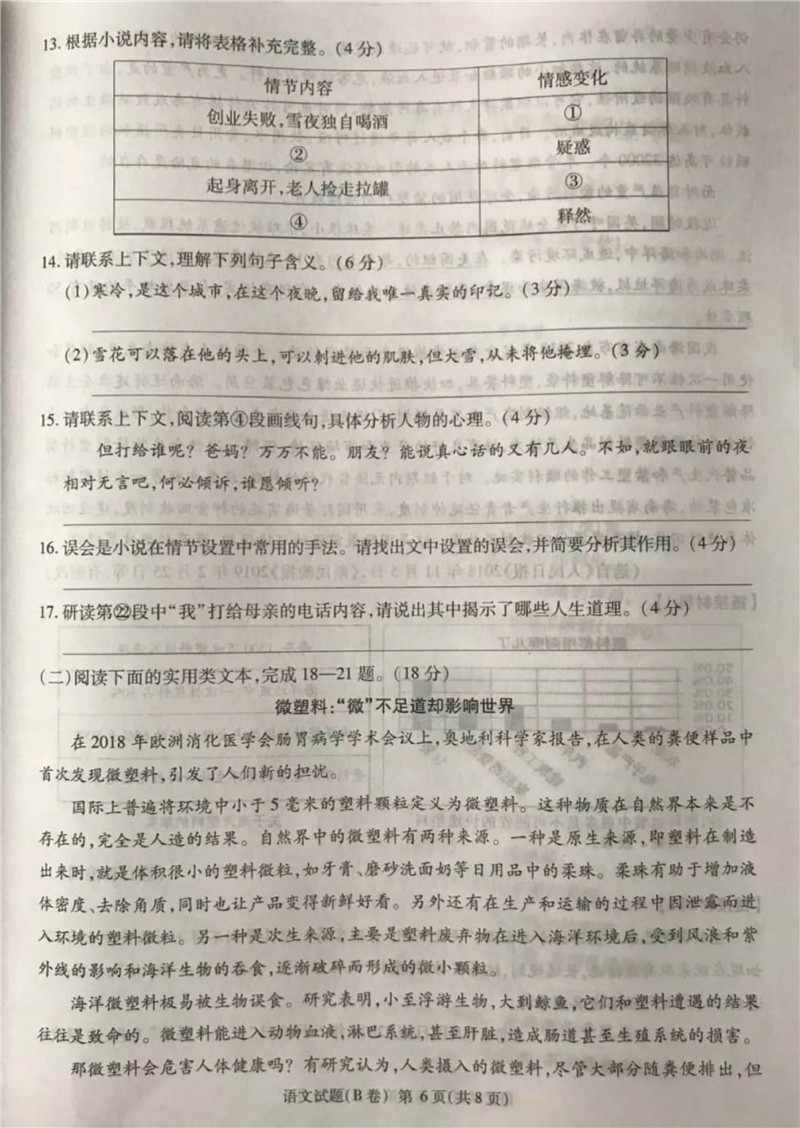 13.根据小说内容,请将表格补充完整。(4分)
情节内容 情感变化
创业失败,雪夜独自喝酒 ①
② 疑惑
起身离开,老人捡走拉罐 ③
④ 释然
14.请联系上下文,理解下列句子含义。(6分)
(1)寒冷,是这个城市,在这个夜晚,留给我唯一真实的印记。(3分)
(2)雪花可以落在他的头上,可以刺进他的肌肤,但大雪,从未将他掩埋。(3分)
15.请联系上下文,阅读第④段画线句,具体分析人物的心理。(4分)
但打给谁呢?爸妈?万万不能。朋友?能说真心话的又有几人。不如,就跟眼前的夜
相对无言吧,何必倾诉,谁愿倾听?
16.误会是小说在情节设置中常用的手法。请找出文中设置的误会,并简要分析其作用。(4分)
17.研读第㉒段中“我”打给母亲的电话内容,请说出其中揭示了哪些人生道理。(4分)
(二)阅读下面的实用类文本,完成18—21题。(18分)
微塑料:“微”不足道却影响世界
在2018年欧洲消化医学会肠胃病学学术会议上,奥地利科学家报告,在人类的粪便样品中
首次发现微塑料,引发了人们新的担忧。
国际上普遍将环境中小于5毫米的塑料颗粒定义为微塑料。这种物质在自然界本来是不
存在的,完全是人造的结果。自然界中的微塑料有两种来源。一种是原生来源,即塑料在制造
出来时,就是体积很小的塑料微粒,如牙膏、磨砂洗面奶等日用品中的柔珠。柔珠有助于增加液
体密度、去除角质,同时也让产品变得新鲜好看。另外还有在生产和运输的过程中因泄露而进
入环境的塑料微粒。另一种是次生来源,主要是塑料废弃物在进入海洋环境后,受到风浪和紫
外线的影响和海洋生物的吞食,逐渐破碎而形成的微小颗粒。
海洋微塑料极易被生物误食。研究表明,小至浮游生物,大到鲸鱼,它们和塑料遭遇的结果
往往是致命的。微塑料能进入动物血液,淋巴系统,甚至肝脏,造成肠道甚至生殖系统的损害。
那微塑料会危害人体健康吗?有研究认为,人类摄入的微塑料,尽管大部分随粪便排出,但
语文试题(B卷) 第6页(共8页)